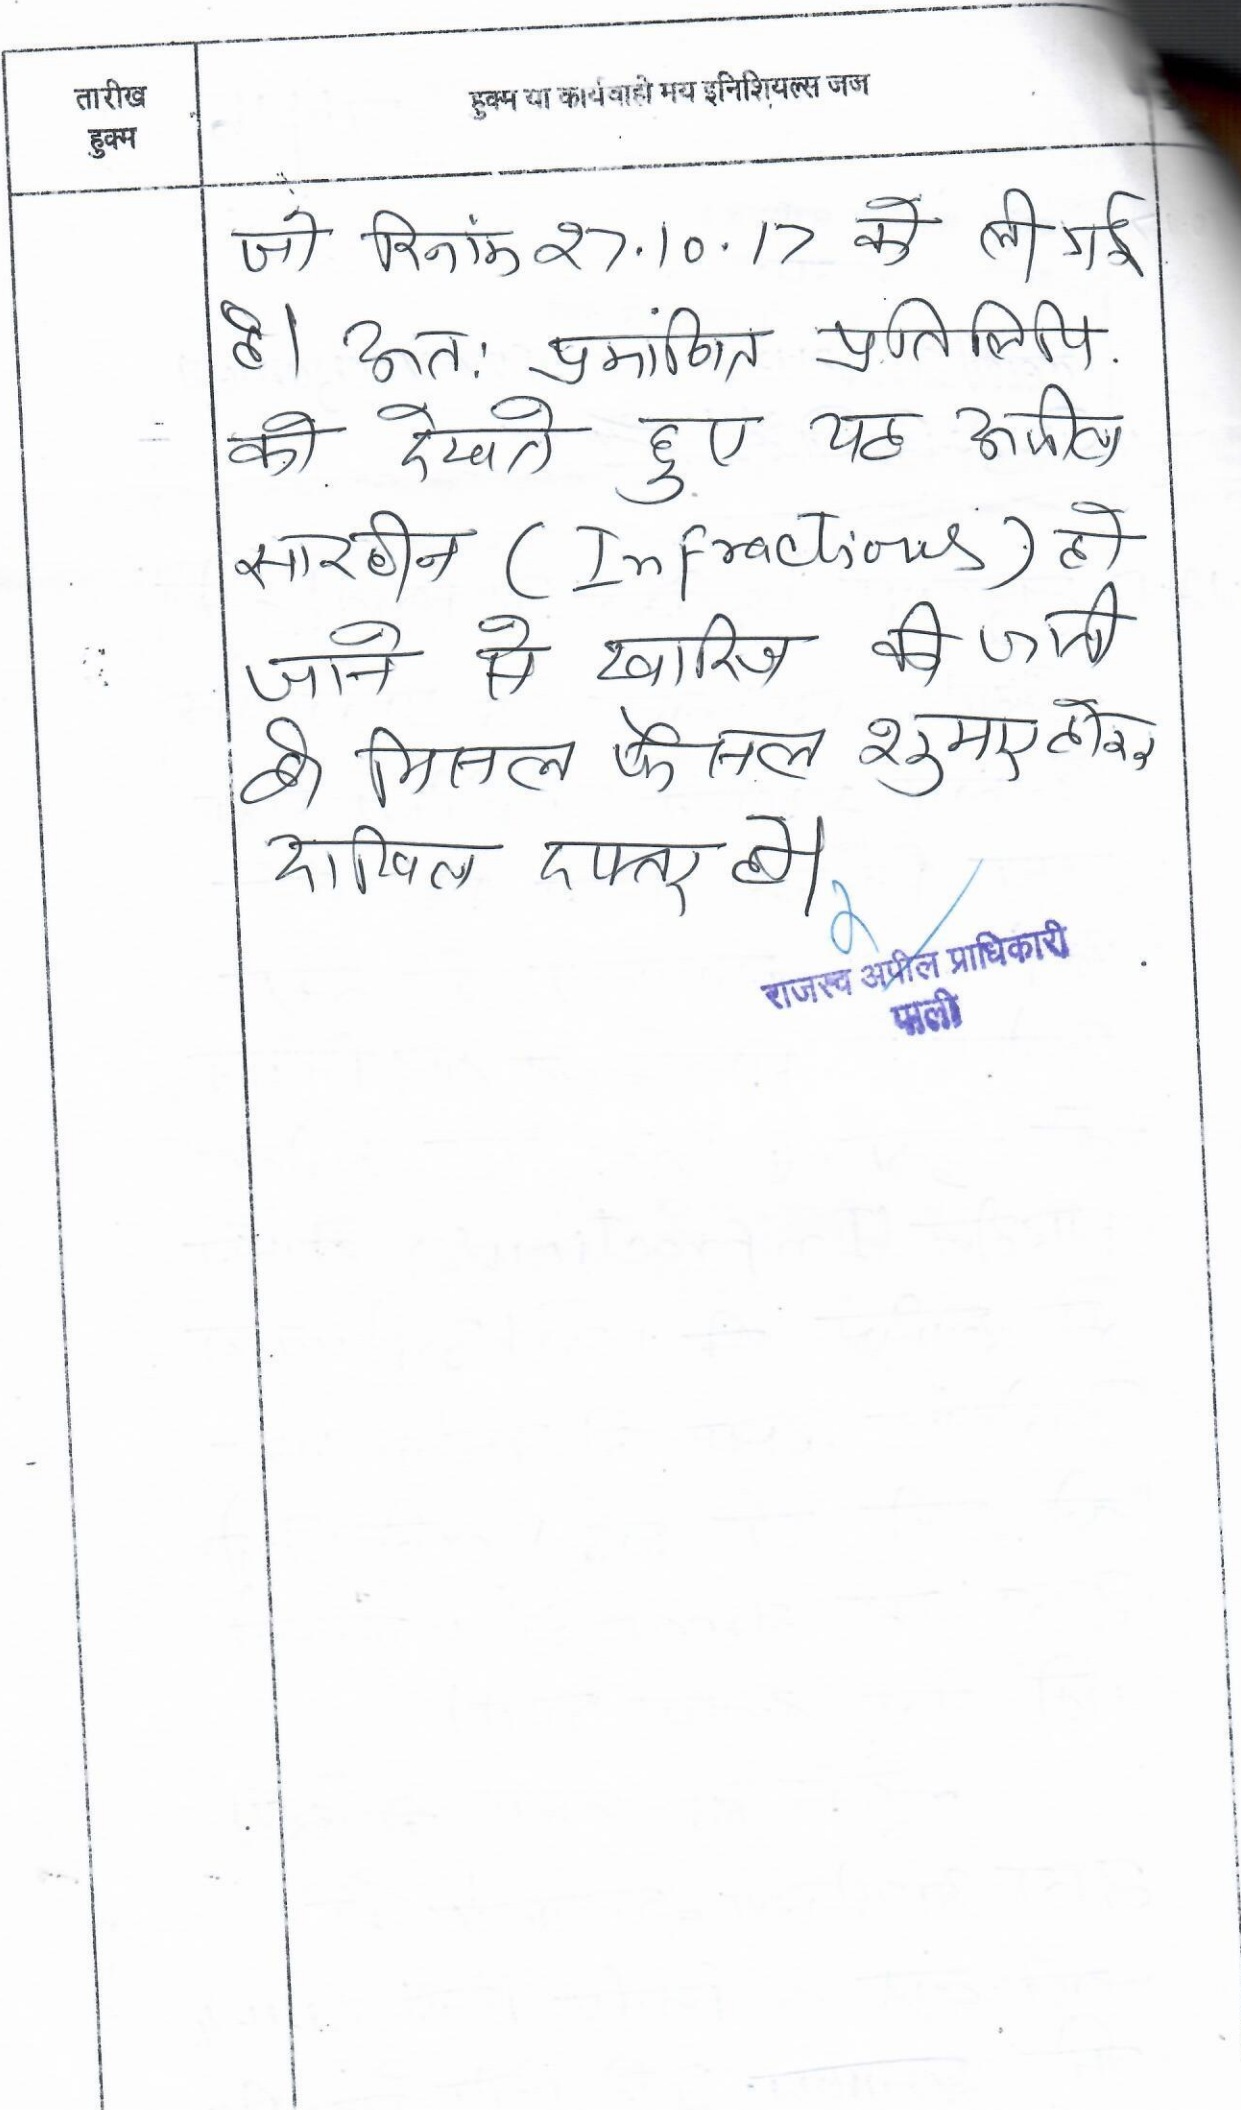 तारीख
हुक्म
हुक्म या कार्यवाही मय इनिशियल्स जज
जो दिनांक 27.10.17 को ली गई
है। अतः प्रमाणित प्रतिलिपि
को देखते हुए यह अपील
सारहीन (Infractious) हो
जाने से खारिज की जाती
है मिसल फैसल शुमार होकर
दाखिल दफ्तर हो।
राजस्व अपील प्राधिकारी
पाली